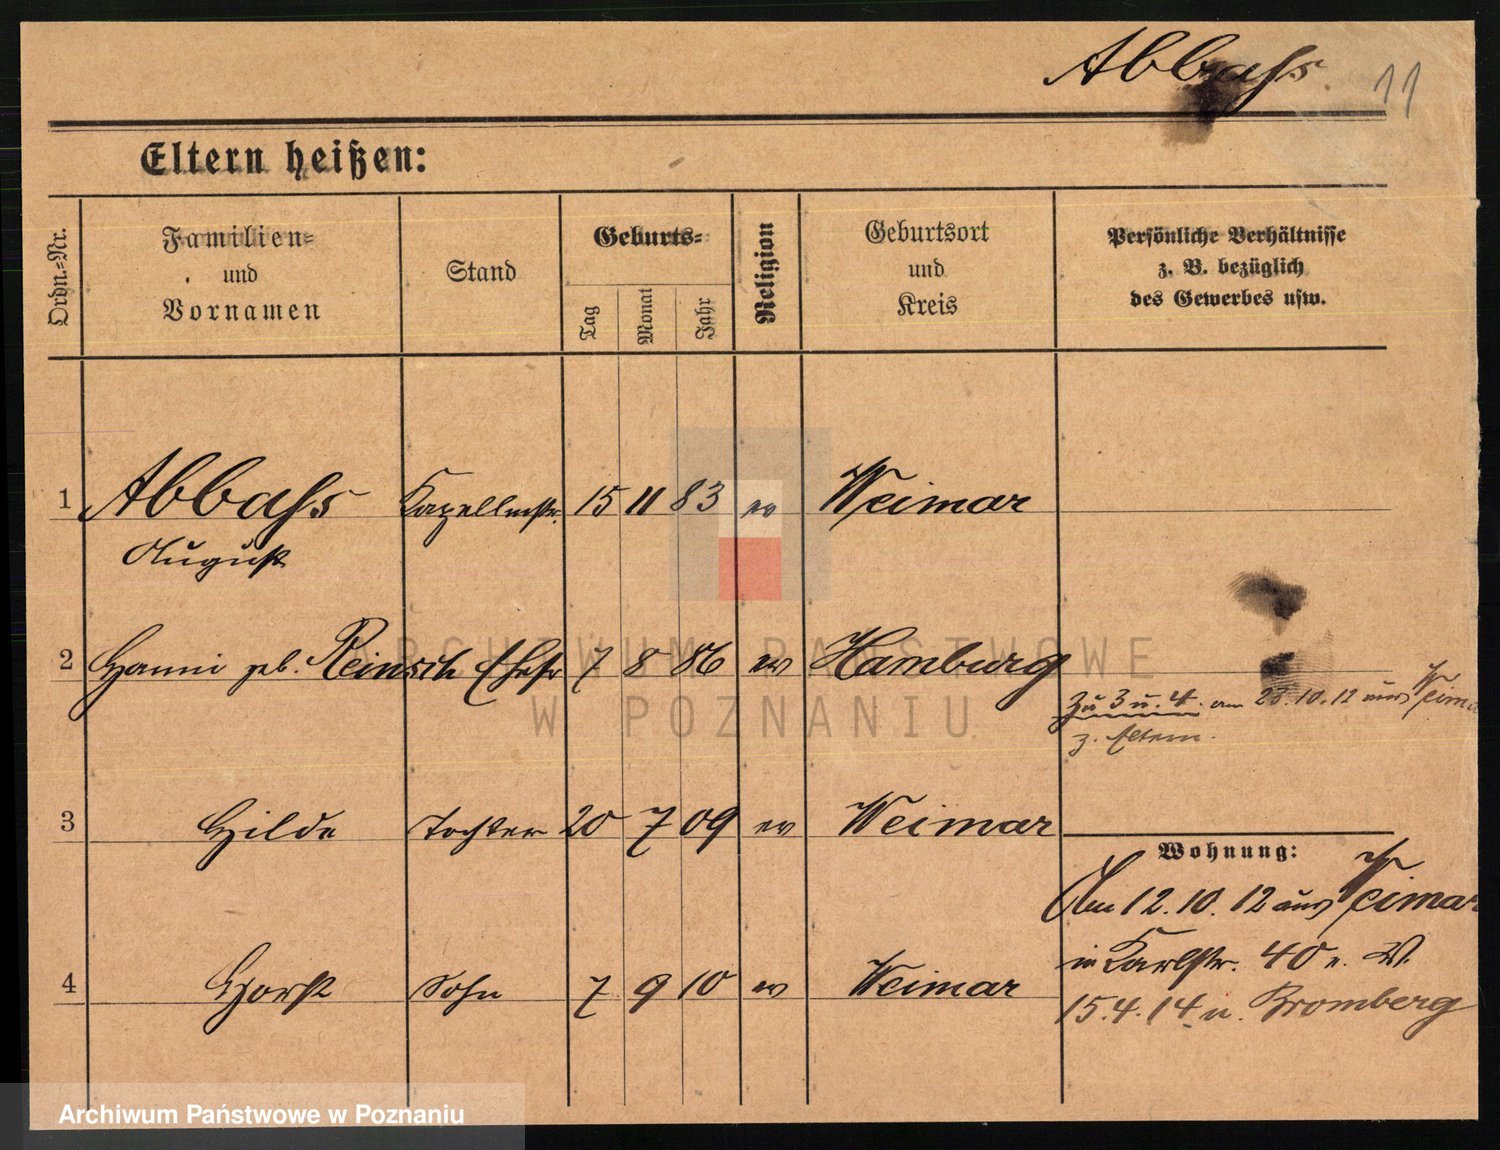 Abbass
11
Eltern heißen:
Ordn.=Nr.
Familien=
und
Vornamen
Stand
Geburts=
Tag
Monat
Jahr
Religion
Geburtsort
und
Kreis
Persönliche Verhältnisse
z. B. bezüglich
des Gewerbes usw.
1 Abbass Kapellmstr. 15 11 83 ev Weimar
August
2 Hanni geb. Reinsch Ehefr 7 8 86 ev Hamburg
Zu 3 u. 4. am 23.10.12 aus Weimar
z. Eltern.
3 Hilde Tochter 20 7 09 ev Weimar
Wohnung:
Am 12.10.12 aus Weimar
in Karlstr. 40 v. W.
4 Horst Sohn 7 9 10 ev Weimar
15.4.14 n. Bromberg
ARCHIWUM PAŃSTWOWE
W POZNANIU
Archiwum Państwowe w Poznaniu